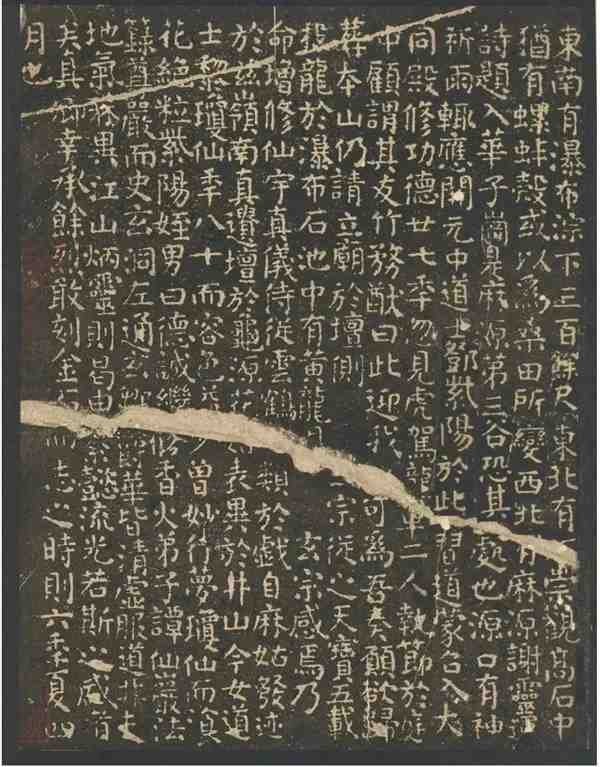 東南有瀑布淙下三百餘尺東北有崇觀高石中
猶有螺蚌殼或以為桑田所變西北有麻源謝靈運
詩題入華子崗是麻源第三谷恐其處也源口有神
祈雨輒應開元中道士鄧紫陽於此習道蒙召入大
同殿修功德廿七季忽見虎駕龍車二人執節於庭
中顧謂其友竹務猷曰此迎我可為吾奏願欲歸
葬本山仍請立廟於壇側宗從之天寶五載
投龍於瀑布石池中有黃龍玄宗感焉乃
命增修仙宇真儀侍從雲鶴類於戲自麻姑發迹
於茲嶺南真遺壇於龜源花表異於井山今女道
士黎瓊仙季八十而容色少曾妙行夢瓊仙而飡
花絕粒紫陽姪男曰德誠繼修香火弟子譚仙巖法
籙尊嚴而史玄洞左通玄華皆清虛服道非夫
地氣殊異江山炳靈則曷由懿流光若斯之盛者
矣真卿幸承餘烈敢刻金而志之時則六季夏四
月也